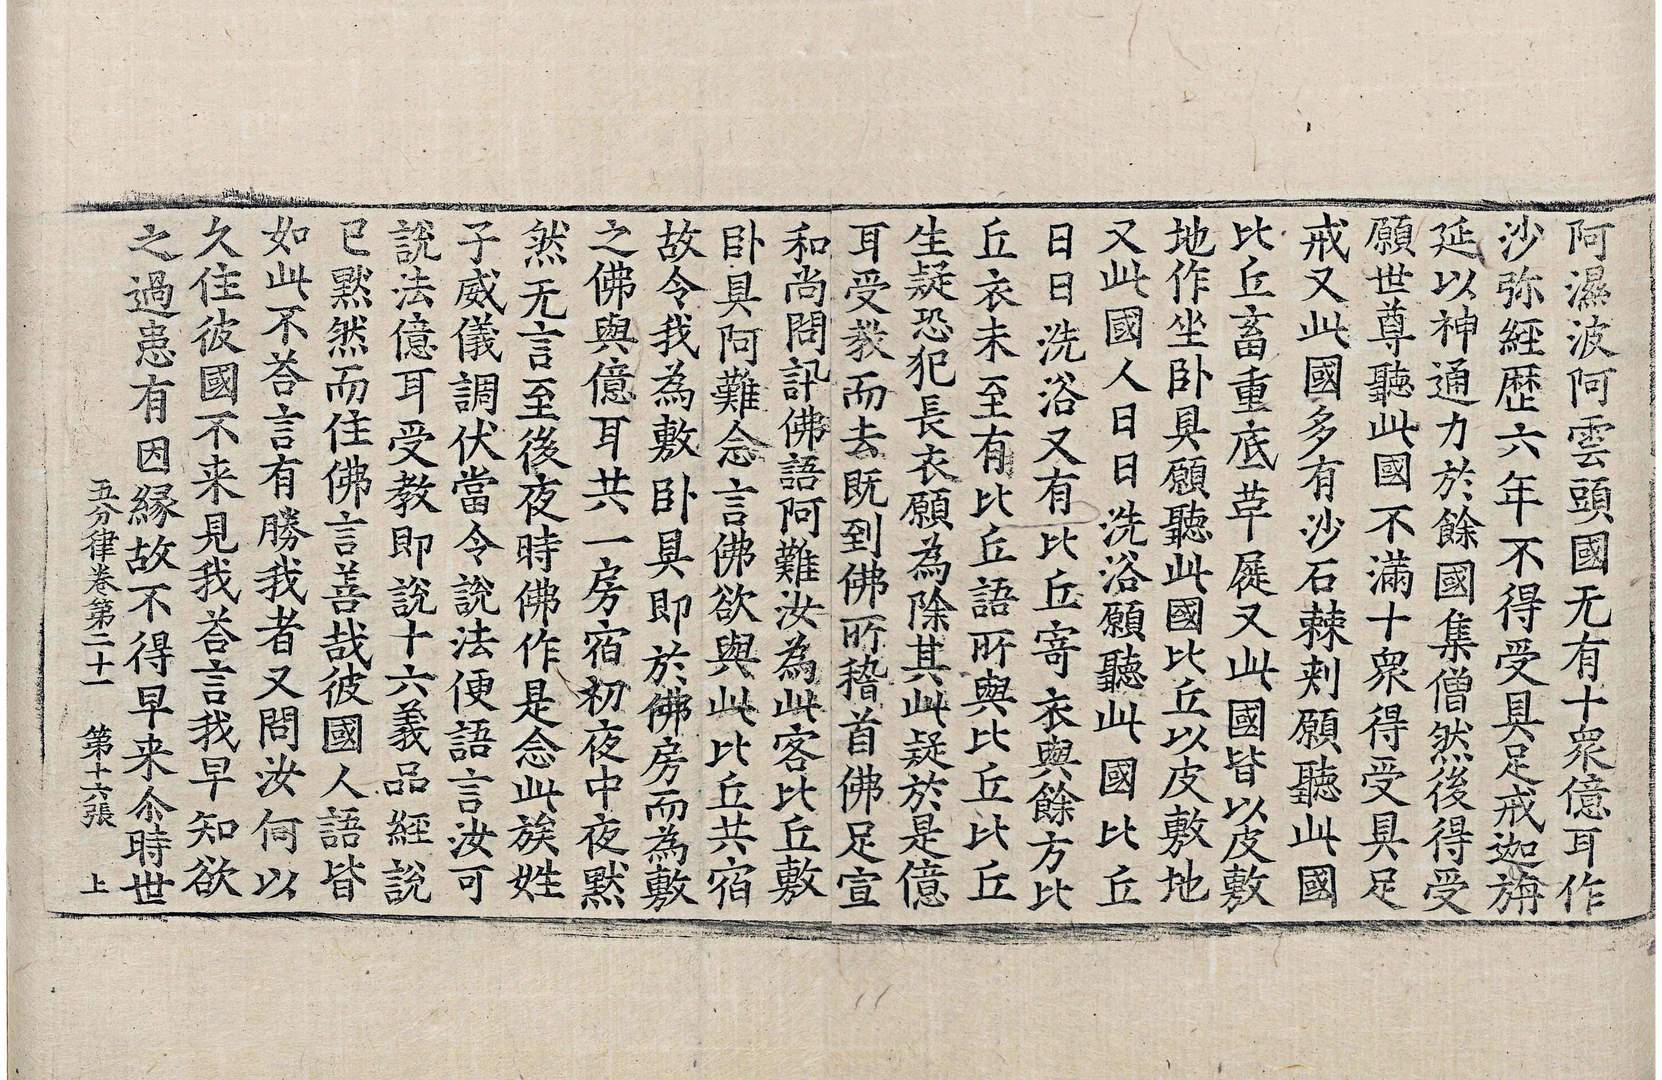 阿濕波阿雲頭國无有十衆億耳作
沙弥經歷六年不得受具足戒迦旃
延以神通力於餘國集僧然後得受
願世尊聽此國不滿十衆得受具足
戒又此國多有沙石棘刾願聽此國
比丘畜重底草屣又此國皆以皮敷
地作坐卧具願聽此國比丘以皮敷地
又此國人日日洗浴願聽此國比丘
日日洗浴又有比丘寄衣與餘方比
丘衣未至有比丘語所與比丘比丘
生疑恐犯長衣願為除其此疑於是億
耳受教而去既到佛所稽首佛足宣
和尚問訊佛語阿難汝為此客比丘敷
卧具阿難念言佛欲與此比丘共宿
故令我為敷卧具即於佛房而為敷
之佛與億耳共一房宿初夜中夜默
然无言至後夜時佛作是念此族姓
子威儀調伏當令說法便語言汝可
說法億耳受教即說十六義品經說
已默然而住佛言善哉彼國人語皆
如此不荅言有勝我者又問汝何以
久住彼國不来見我荅言我早知欲
之過患有因緣故不得早来尒時世
五分律卷第二十一 第十六張 上